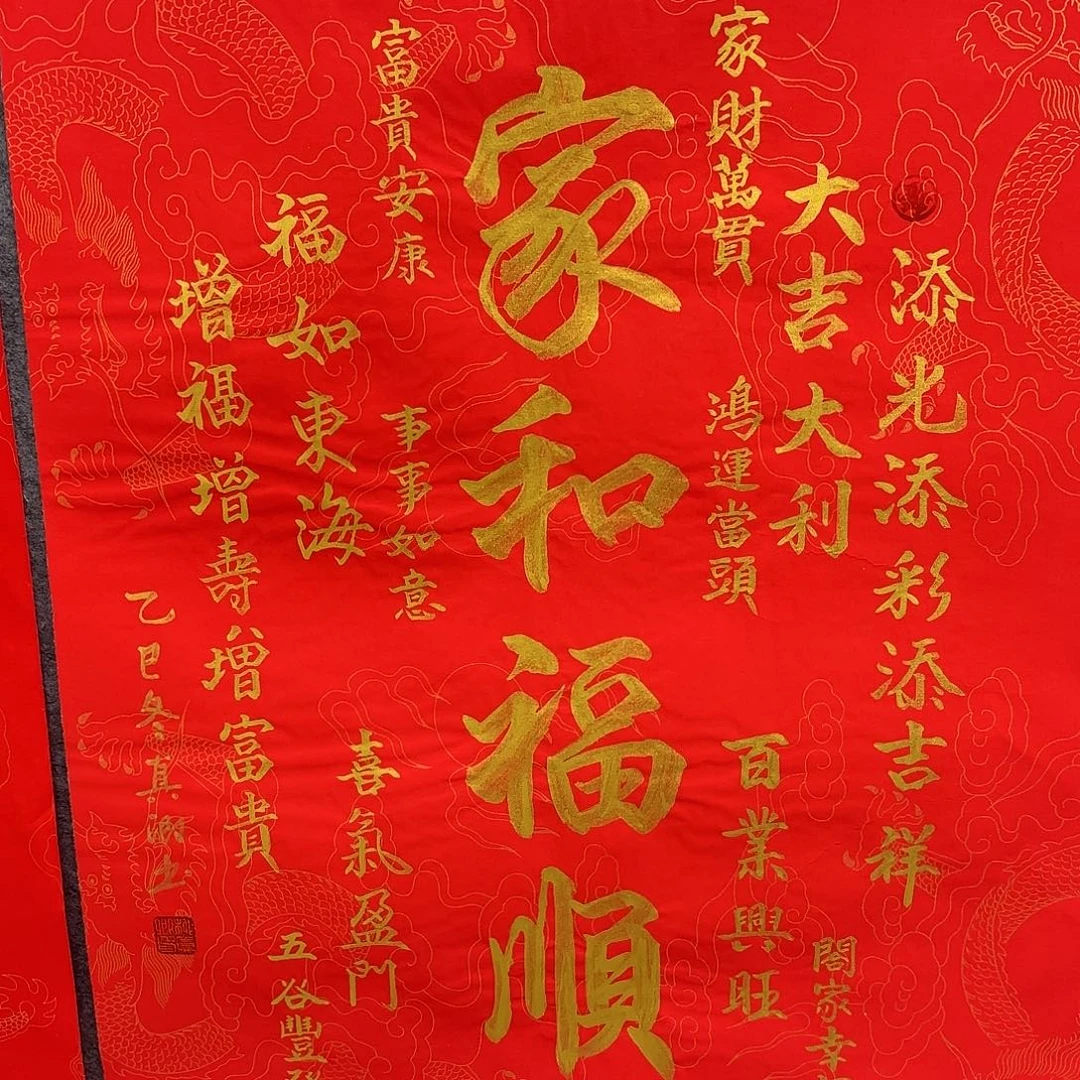 添光添彩添吉祥
大吉大利
閤家幸
家財萬貫
鴻運當頭
百業興旺
家和福順
富貴安康
事事如意
喜氣盈門
福如東海
五谷豐
增福增壽增富貴
乙巳冬真